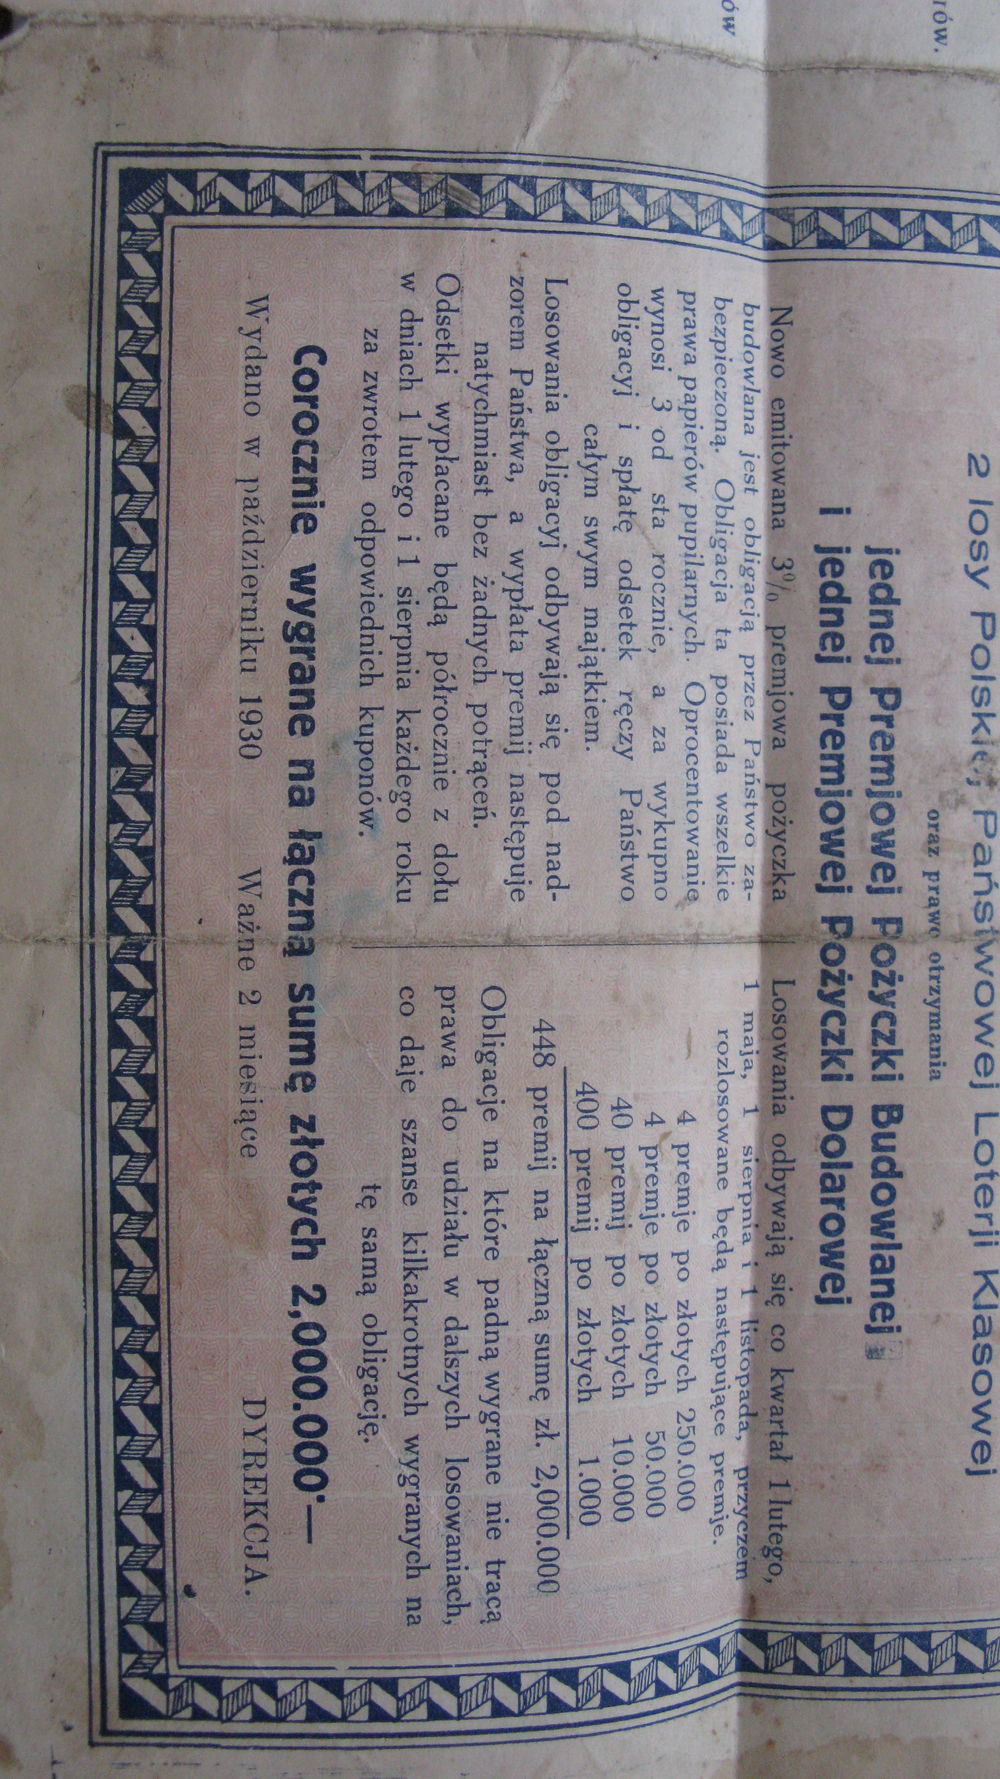 ów
rów.
2 losy Polskiej Państwowej Loterji Klasowej
oraz prawo otrzymania
jednej Premjowej Pożyczki Budowlanej
i jednej Premjowej Pożyczki Dolarowej
Nowo emitowana 3% premjowa pożyczka
budowlana jest obligacją przez Państwo za-
bezpieczoną. Obligacja ta posiada wszelkie
prawa papierów pupilarnych. Oprocentowanie
wynosi 3 od sta rocznie, a za wykupno
obligacyj i spłatę odsetek ręczy Państwo
całym swym majątkiem.
Losowania obligacyj odbywają się pod nad-
zorem Państwa, a wypłata premij następuje
natychmiast bez żadnych potrąceń.
Odsetki wypłacane będą półrocznie z dołu
w dniach 1 lutego i 1 sierpnia każdego roku
za zwrotem odpowiednich kuponów.
Losowania odbywają się co kwartał 1 lutego,
1 maja, 1 sierpnia i 1 listopada, przyczem
rozlosowane będą następujące premje.
4 premje po złotych 250.000
4 premje po złotych 50.000
40 premij po złotych 10.000
400 premij po złotych 1.000
448 premij na łączną sumę zł. 2,000.000
Obligacje na które padną wygrane nie tracą
prawa do udziału w dalszych losowaniach,
co daje szanse kilkakrotnych wygranych na
tę samą obligację.
Corocznie wygrane na łączną sumę złotych 2,000.000·—
Wydano w październiku 1930 Ważne 2 miesiące DYREKCJA.